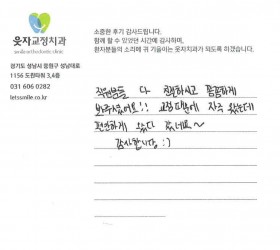 웃자교정치과
경기도 성남시 중원구 성남대로
1156 도원타워 3,4층
031 606 0282
letssmile.co.kr
소중한 후기 감사드립니다.
함께 할 수 있었던 시간에 감사하며,
환자분들의 소리에 귀 기울이는 웃자치과가 되도록 하겠습니다.
직원분들 다 친절하시고 꼼꼼하게
봐주셨어요!! 교정 때문에 자주 왔는데
편안하게 왔다 갔네요~
감사합니다 :)